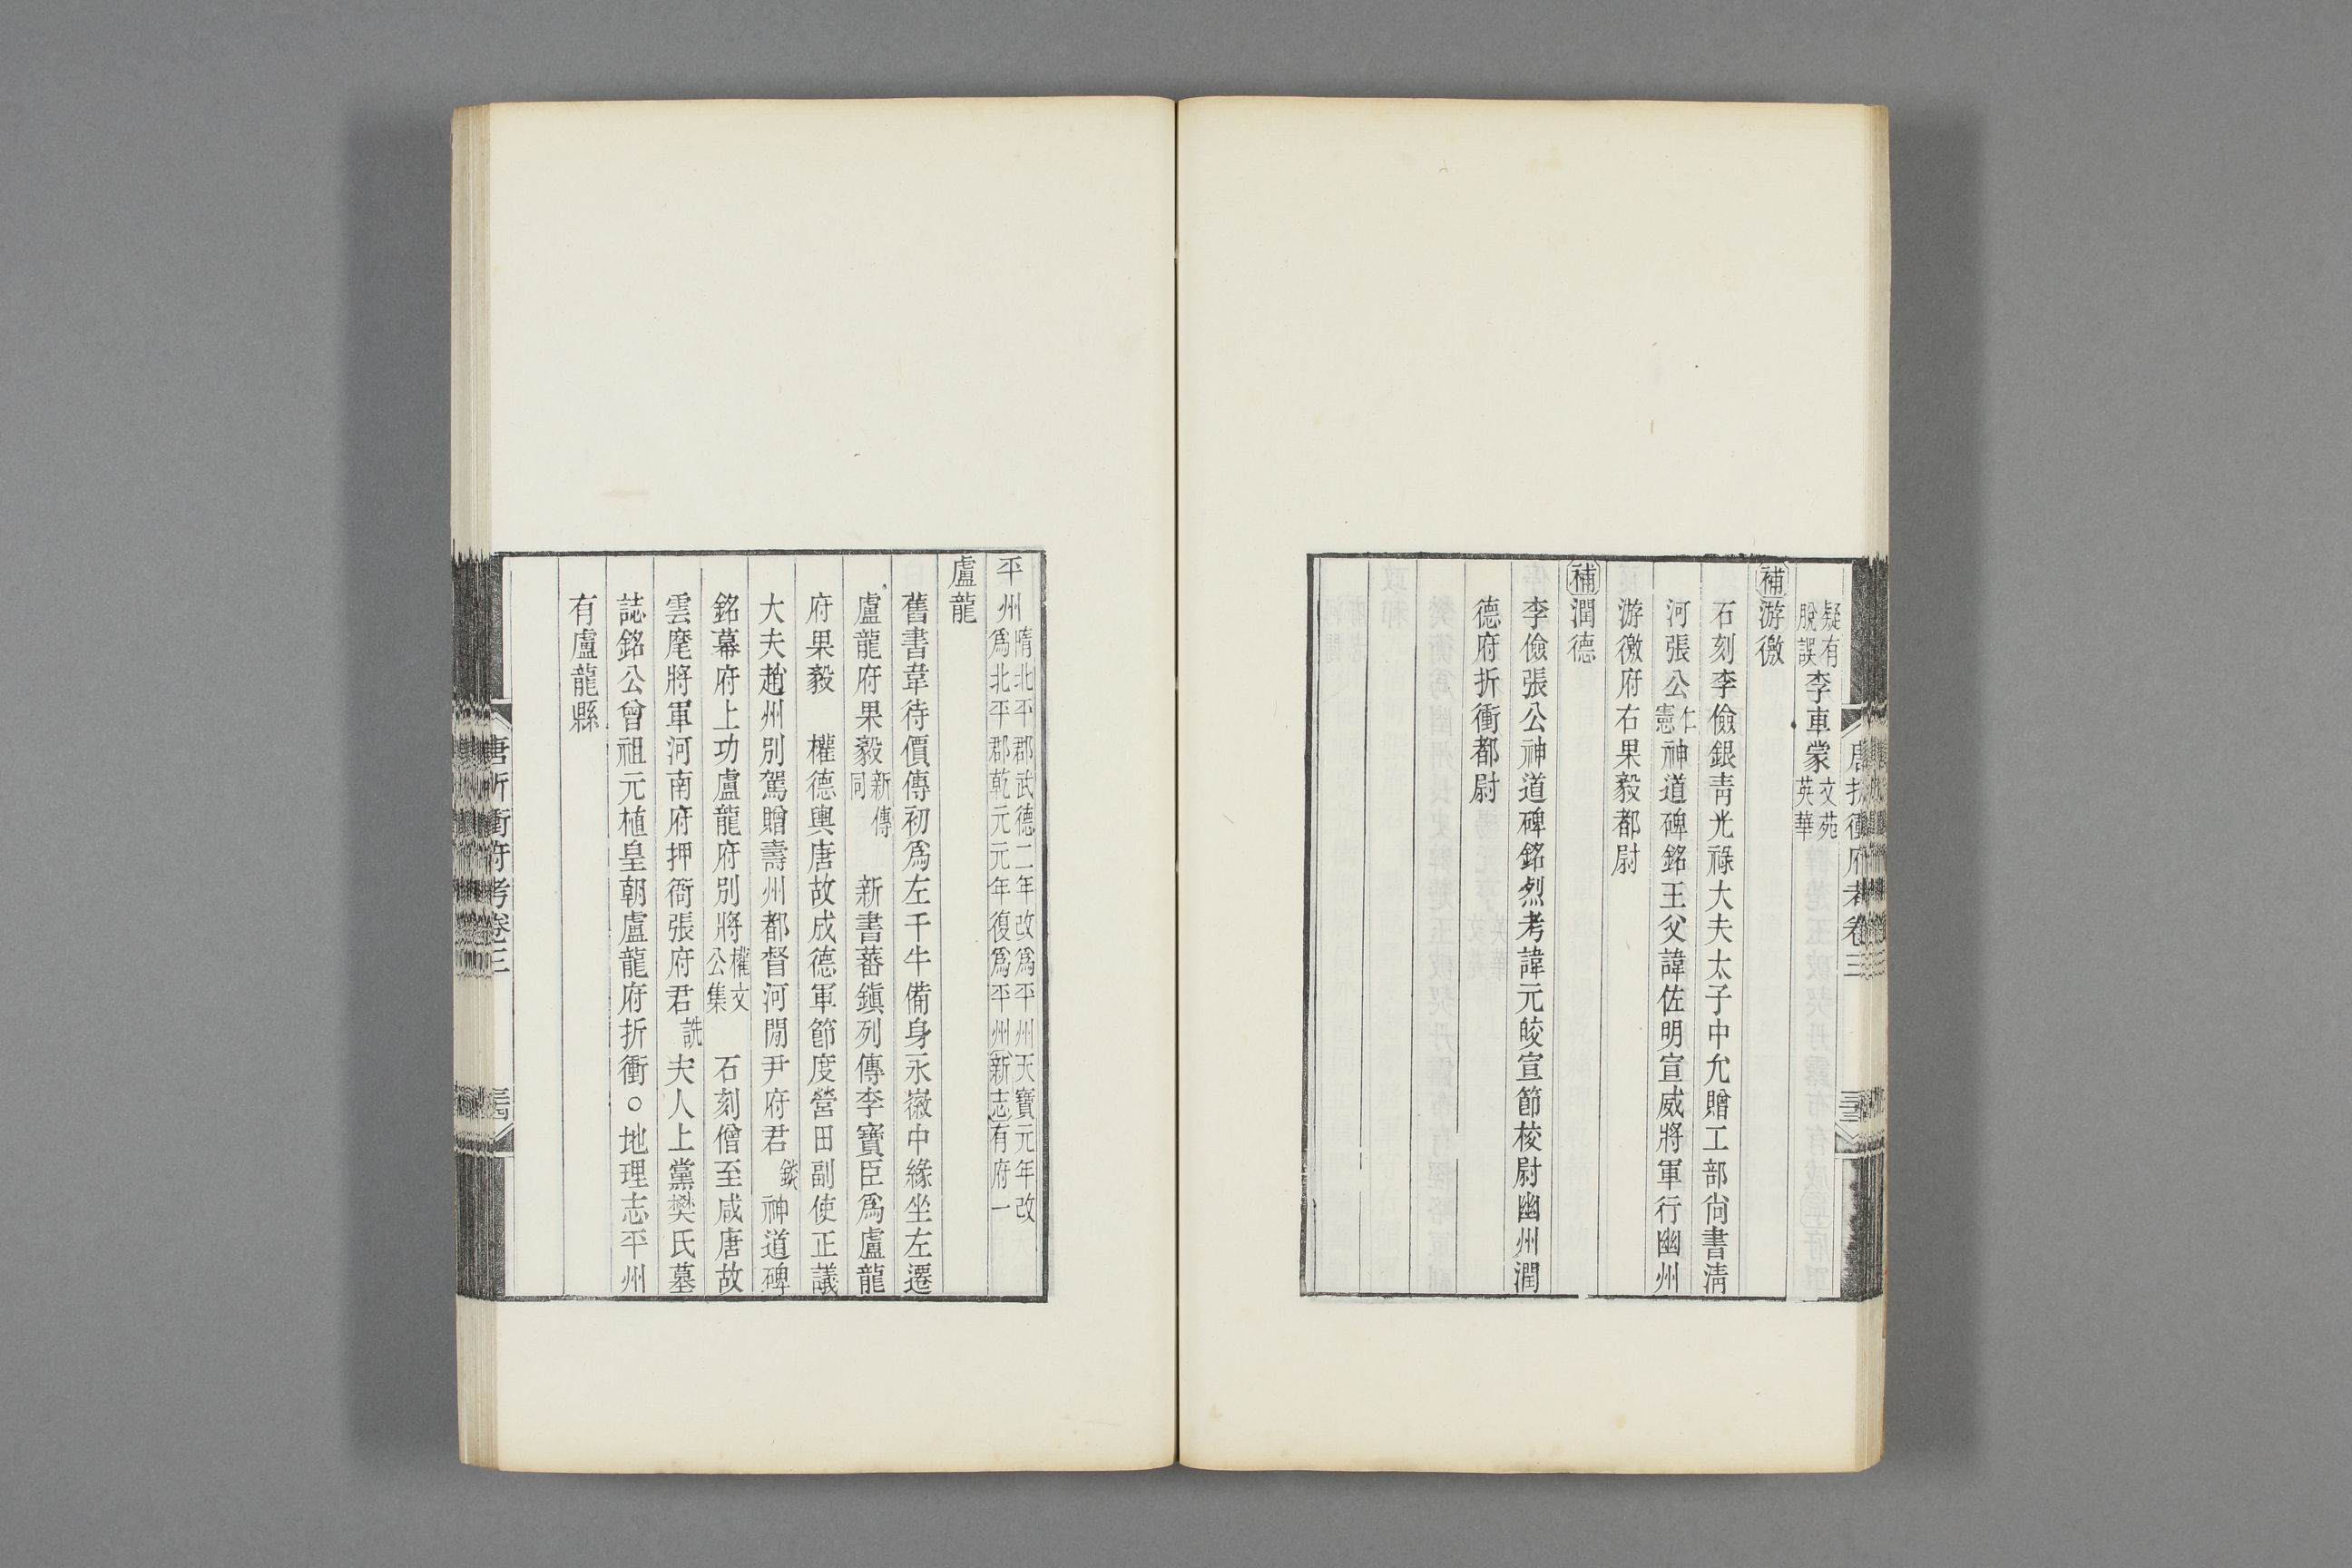 疑有脫誤李車蒙文苑英華
補游徼
石刻李儉銀靑光祿大夫太子中允贈工部尙書淸
河張公仁憲神道碑銘王父諱佐明宣威將軍行幽州
游徼府右果毅都尉
補潤德
李儉張公神道碑銘烈考諱元皎宣節校尉幽州潤
德府折衝都尉
唐折衝府考卷三
平州隋北平郡武德二年改爲平州天寶元年改爲北平郡乾元元年復爲平州新志有府一
盧龍
舊書韋待價傳初爲左千牛備身永徽中緣坐左遷
盧龍府果毅新傳同　新書蕃鎭列傳李寶臣爲盧龍
府果毅　權德輿唐故成德軍節度營田副使正議
大夫趙州別駕贈壽州都督河閒尹府君錟神道碑
銘幕府上功盧龍府別將權文公集　石刻僧至咸唐故
雲麾將軍河南府押衙張府君詵夫人上黨樊氏墓
誌銘公曾祖元植皇朝盧龍府折衝○地理志平州
有盧龍縣
唐折衝府考卷三